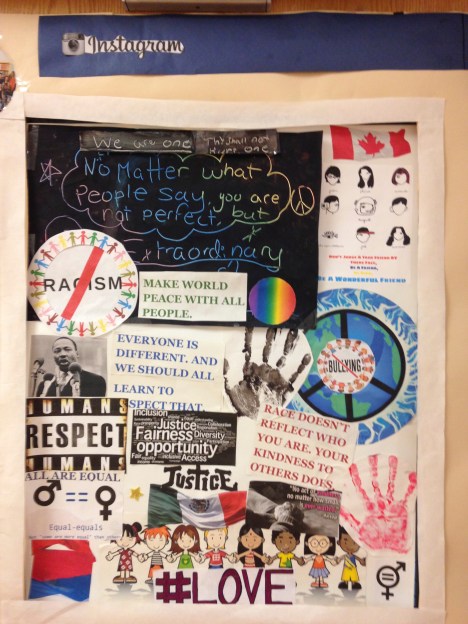 Instagram
We are one
No Matter what
People say, you are
not perfect, but
xtraordinary
RACISM
MAKE WORLD
PEACE WITH ALL
PEOPLE.
BE A WONDERFUL FRIEND
BULLYING
EVERYONE IS
DIFFERENT, AND
WE SHOULD ALL
LEARN TO
RESPECT THAT.
HUMANS
RESPECT
HUMANS
Inclusion
Justice
Fairness
Diversity
opportunity
Inclusive
Access
JUSTICE
RACE DOESN'T
REFLECT WHO
YOU ARE. YOUR
KINDNESS TO
OTHERS DOES.
ALL ARE EQUAL
==
Equal-equals
#LOVE